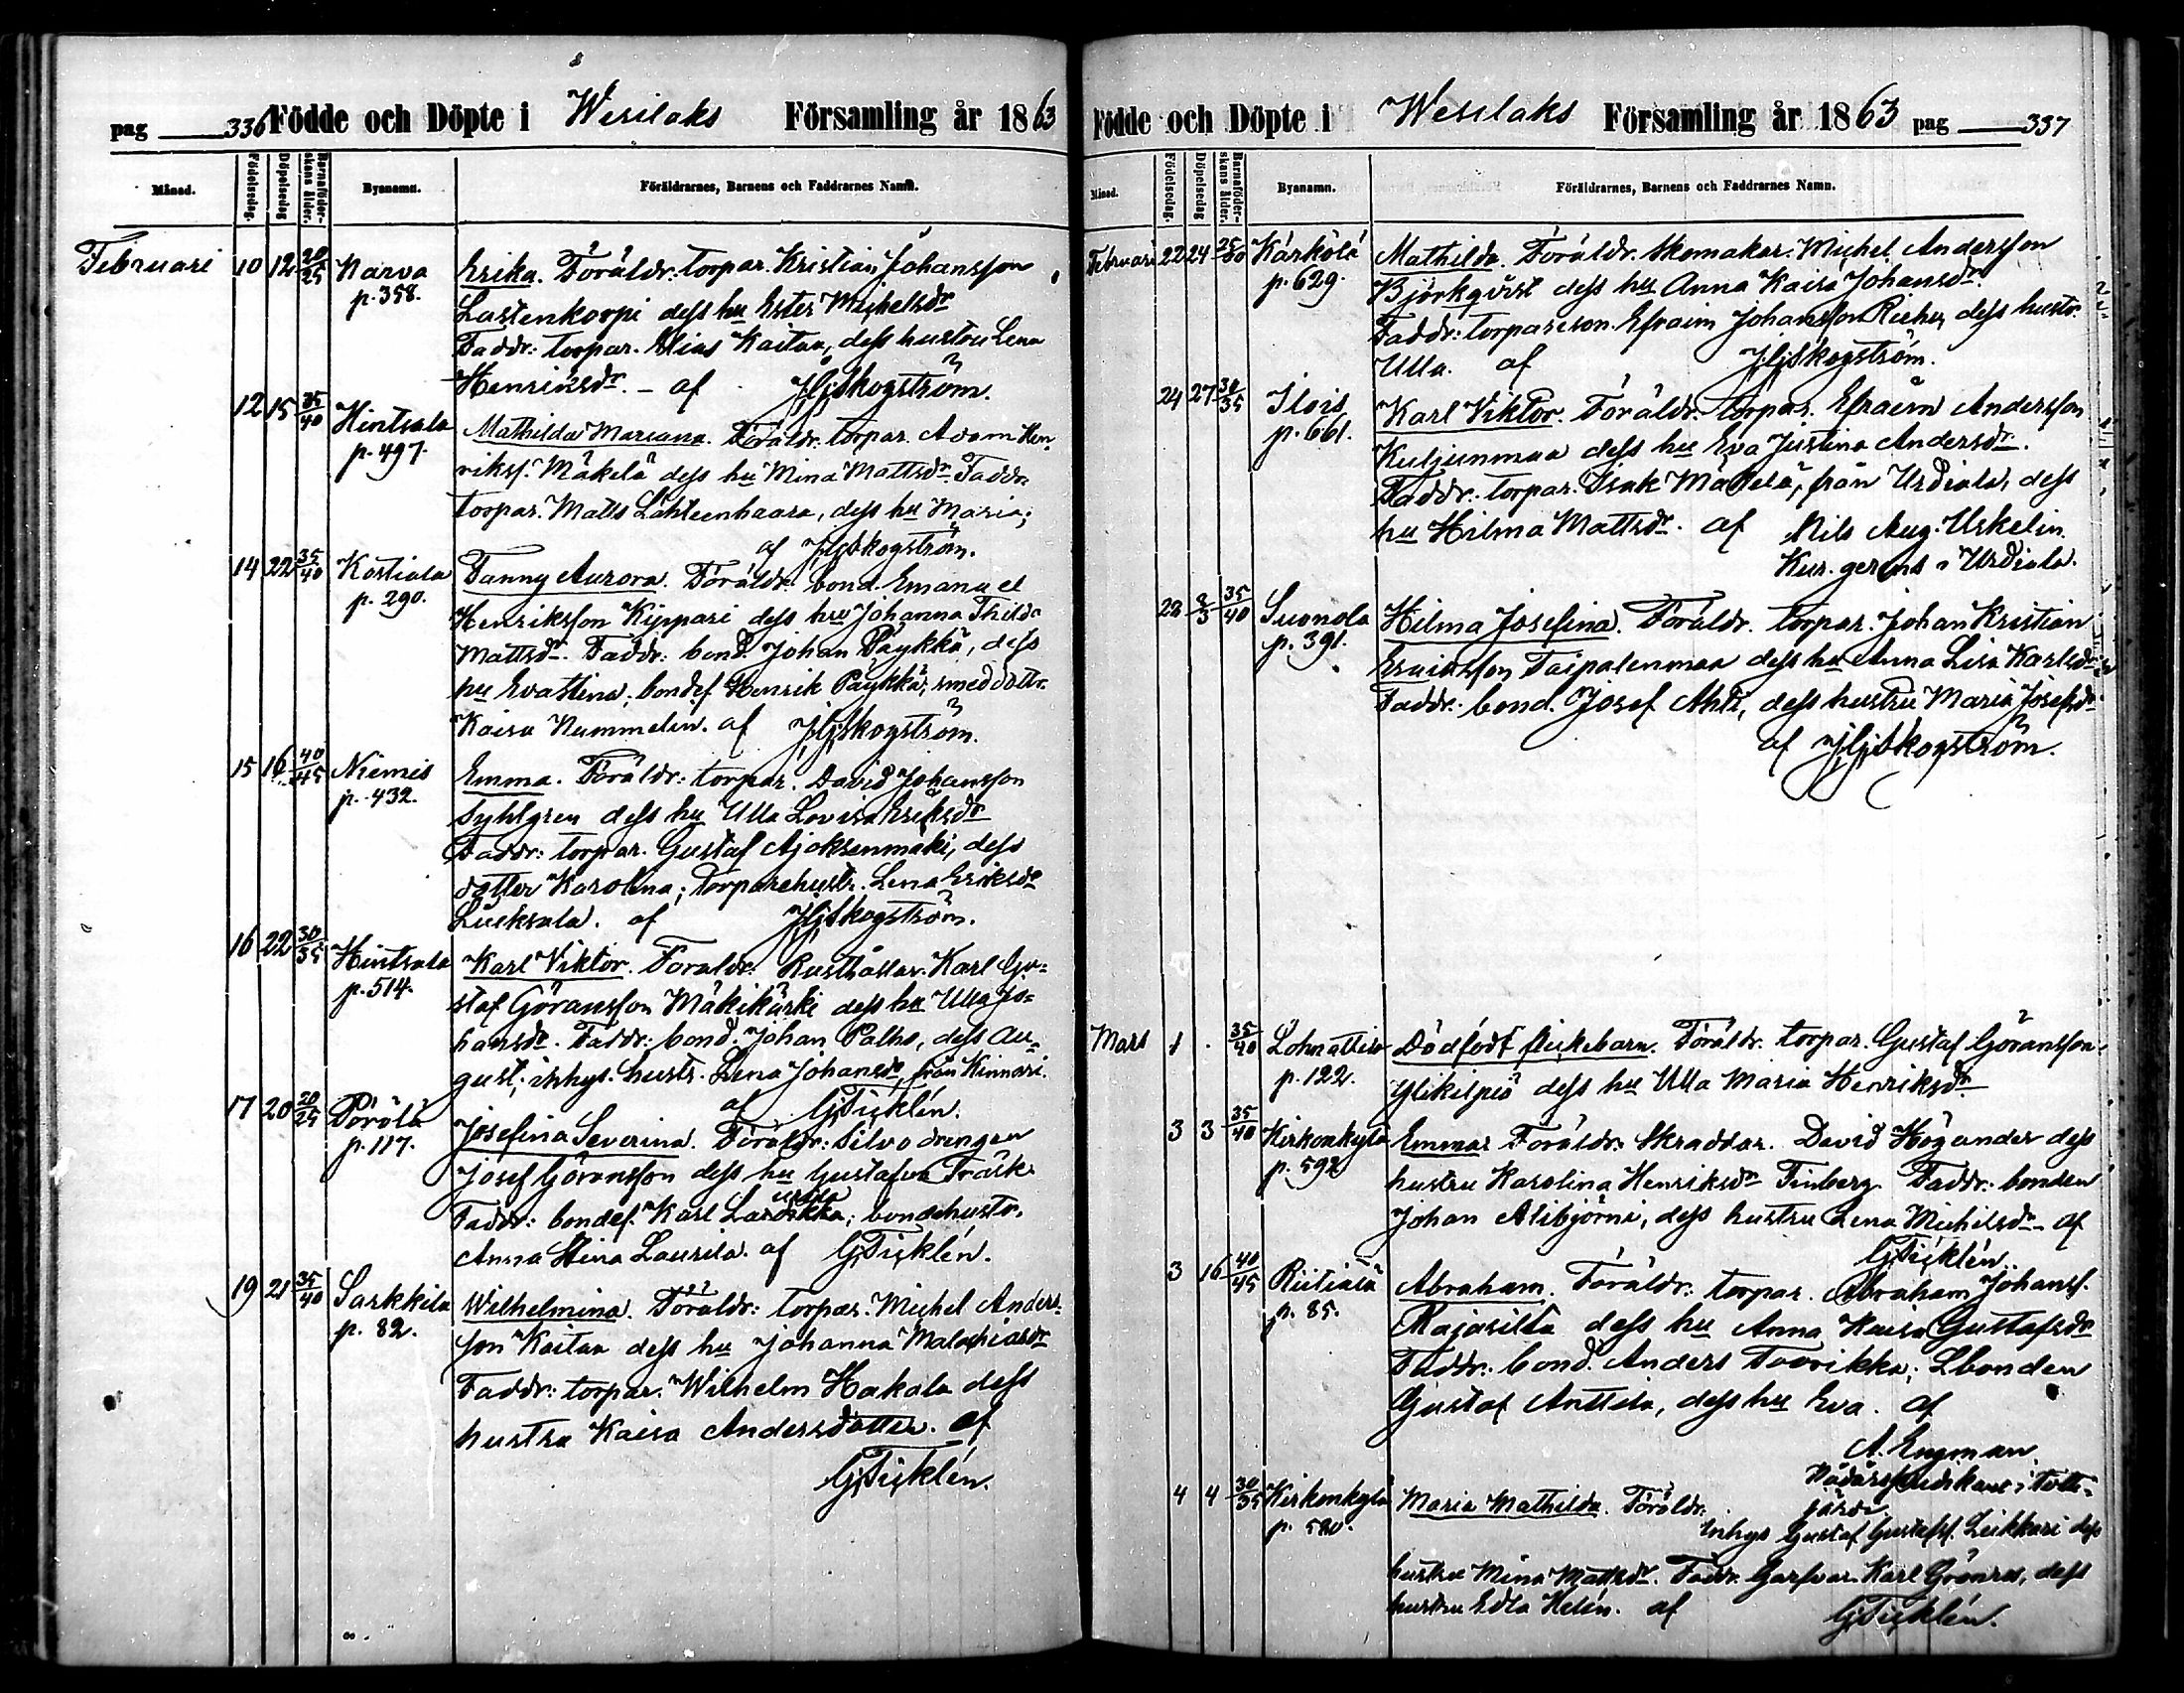 pag 336 Födde och Döpte i Wesilaks Församling år 1863
Månad. Födelsedag. Döpelsedag Barnaföderskans ålder. Byanamn. Föräldrarnes, Barnens och Faddrarnes Namn.
Februari 10 12 20/25 Narva Erika. Föräldr. torpar. Kristian Johansson
p. 358. Lastenkorpi dess hu Ester Michelsdr
Faddr: torpar. Elias Kaitaa, dess hustru Lena
Henriksdr. - af JGSkogström.
12 15 35/40 Hintsala Mathilda Mariana. Föräldr. torpar. Adam Hen
p. 497. rikss. Mäkelä dess hu Mina Mattsdr. Faddr.
torpar. Matts Lähteenhaara, dess hu Maria;
af JGSkogström.
14 22 35/40 Kostiala Fanny Aurora. Föräldr. bond. Emanuel
p. 290. Henriksson Kippari dess hu Johanna Thilda
Mattsdr. Faddr: bond. Johan Päykkä, dess
hu Evastina; bondes. Henrik Päykkä; smeddottr.
Kaisa Nummelin. af JGSkogström.
15 16 40/45 Niemis Emma. Föräldr: torpar. David Johansson
p. 432. Syhlgren dess hu Ulla Lovisa Eriksdr
Faddr: torpar. Gustaf Ajoksenmäki, dess
dotter Karolina; torparehustr. Lena Eriksdr
af JGSkogström.
16 22 30/35 Hintsala Karl Viktor. Föräldr. Rusthållar. Karl Gu=
p. 514. staf Göransson Mäkikärki dess hu Ulla Jo=
hansdr. Faddr: bond. Johan Palho, dess Au=
gust; inhys. hustr. Lena Johansdr från Kinnari.
af GTicklén.
17 20 20/25 Pöröla Josefina Severina. Föräldr: Silvo drengen
p. 117. Josef Göransson dess hu Gustafva Träsk.
Faddr: bondes. Karl; bondehustr.
Anna Stina Laurila. af GTicklén.
19 21 35/40 Sarkkila Wilhelmina. Föräldr: torpar. Michel Anders=
p. 82. son Kaitaa dess hu Johanna Malakiasdr
Faddr: torpar. Wilhelm Hakala dess
hustru Kaisa Andersdotter. af
GTicklén.
Födde och Döpte i Wesilaks Församling år 1863 pag 337
Månad. Födelsedag. Döpelsedag Barnaföderskans ålder. Byanamn. Föräldrarnes, Barnens och Faddrarnes Namn.
Februari 22 24 25/30 Kärkölä Mathilda. Föräldr. Skomakar. Michel Andersson
p. 629. Björkqvist dess hu Anna Kaisa Johansdr.
Faddr: torpareson Efraim Johansson dess hustr.
Ulla. af JGSkogström.
24 27 30/35 Ilois Karl Viktor. Föräldr. torpar. Efraim Andersson
p. 661. Kuljunmaa dess hu Eva Justina Andersdr.
Faddr. torpar. Isak Mäkelä, från Urdiala, dess
hu Hilma Mattsdr. af Nils Aug. Uskelin.
i Urdiala.
22 2/3 35/40 Suonola Hilma Josefina. Föräldr. torpar. Johan Kristian
p. 391. Ericksson Taipalenmaa dess hu Anna Lisa Karlsdr
Faddr: bond. Josef Ahti, dess hustru Maria Josefsdr
af JGSkogström.
Mars 1 . 35/40 Lohnattisa Dödfödt flickebarn. Föräldr. torpar. Gustaf Göransson
p. 122. Ylikilpiö dess hu Ulla Maria Henriksdr
3 3 35/40 Kirkonkylä Emma. Föräldr. Skräddar. David Högander dess
p. 592 hustru Karolina Henriksdr Finberg. Faddr: bonden
Johan Alibjörni, dess hustru Lena Michelsdr - af
GTicklén.
3 16 40/45 Riitiala Abraham. Föräldr: torpar. Abraham Johanss.
p. 85. Rajasilta dess hu Anna Kaisa Gustafsdr
Faddr: bond. Anders Toorikka; Lbonden
Gustaf Anttila, dess hu Eva. af
A. Engman
Nådårspredikant i Tott=
järvi
4 4 30/35 Kirkonkylä Maria Mathilda. Föräldr.
p. 580. inhys Gustaf Gustafss. Leikkari dess
hustru Mina Mattsdr. Faddr. Garfvar. Karl Grönros, dess
hustru Edla Helén. af GTicklén.